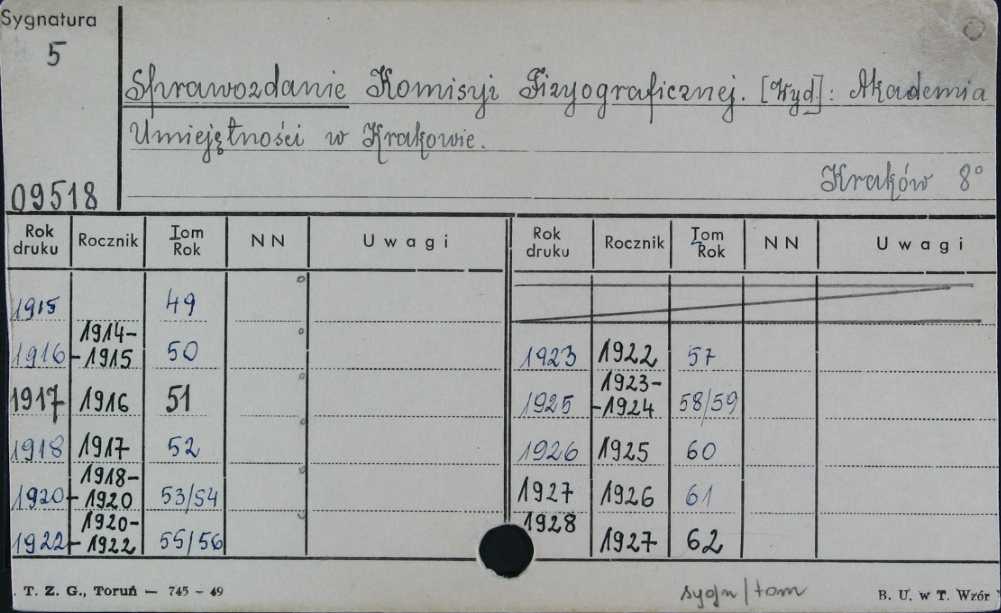 Sygnatura
5
Sprawozdanie Komisyi Fizyograficznej. [Wyd]: Akademia
Umiejętności w Krakowie.
Kraków 8°
09518
Rok druku Rocznik Tom Rok NN Uwagi Rok druku Rocznik Tom Rok NN Uwagi
1915 49
1916 1914-1915 50 1923 1922 57
1917 1916 51 1925 1923-1924 58/59
1918 1917 52 1926 1925 60
1920 1918-1920 53/54 1927 1926 61
1922 1920-1922 55/56 1928 1927 62
T. Z. G., Toruń — 745 - 49 sygn/tom B. U. w T. Wzór